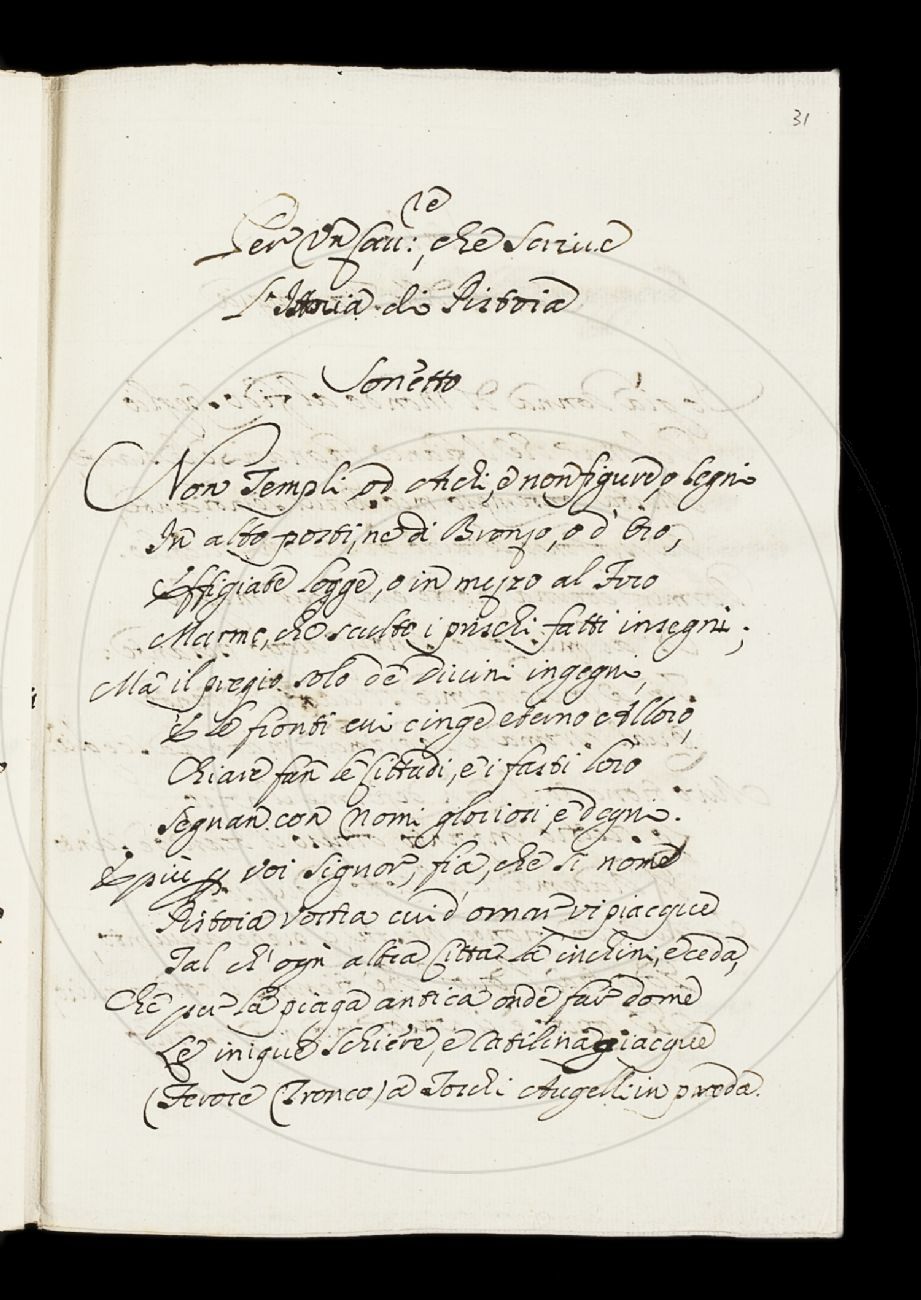 31
Per Un Cau:re, che Scriue
l'Istoria di Pistoia
Sonetto
Non Templi, od Archi, e non figure, o Segni
In alto posti, ne di Bronzo, o d'Oro,
Effigiate logge, o in mezzo al Foro
Marme, che sculto i prischi fatti insegni;
Ma il pregio solo de Diuini ingegni,
E le fronti cui cinge eterno Alloro,
Chiare fan le Cittadi, e i fasti loro
Segnan con Nomi gloriosi, e degni.
E più per voi Signor, fia, che si nome
Pistoia vostra cui d'ornar vi piacque
Tal ch'ogn' altra Città la inchini, e ceda,
Che per la piaga antica onde fur dome
Le inique Schiere, e Catilina giacque
(Feroce Tronco) a Toschi Augelli in preda.